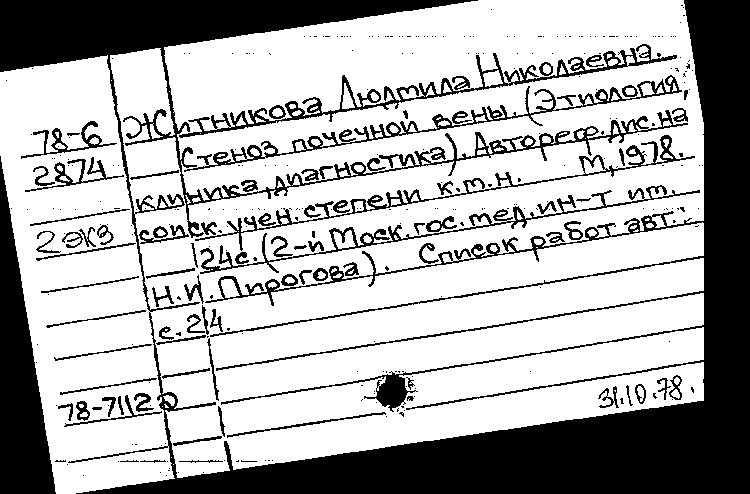 78-6 Житникова, Людмила Николаевна.
2874 Стеноз почечной вены. (Этиология,
клиника, диагностика). Автореф. дис. на
2 экз соиск. учен. степени к.м.н. М, 1978.
24с. (2-й Моск. гос. мед. ин-т им.
Н.И. Пирогова). Список работ авт.:
с. 24.
78-71122
31.10.78.